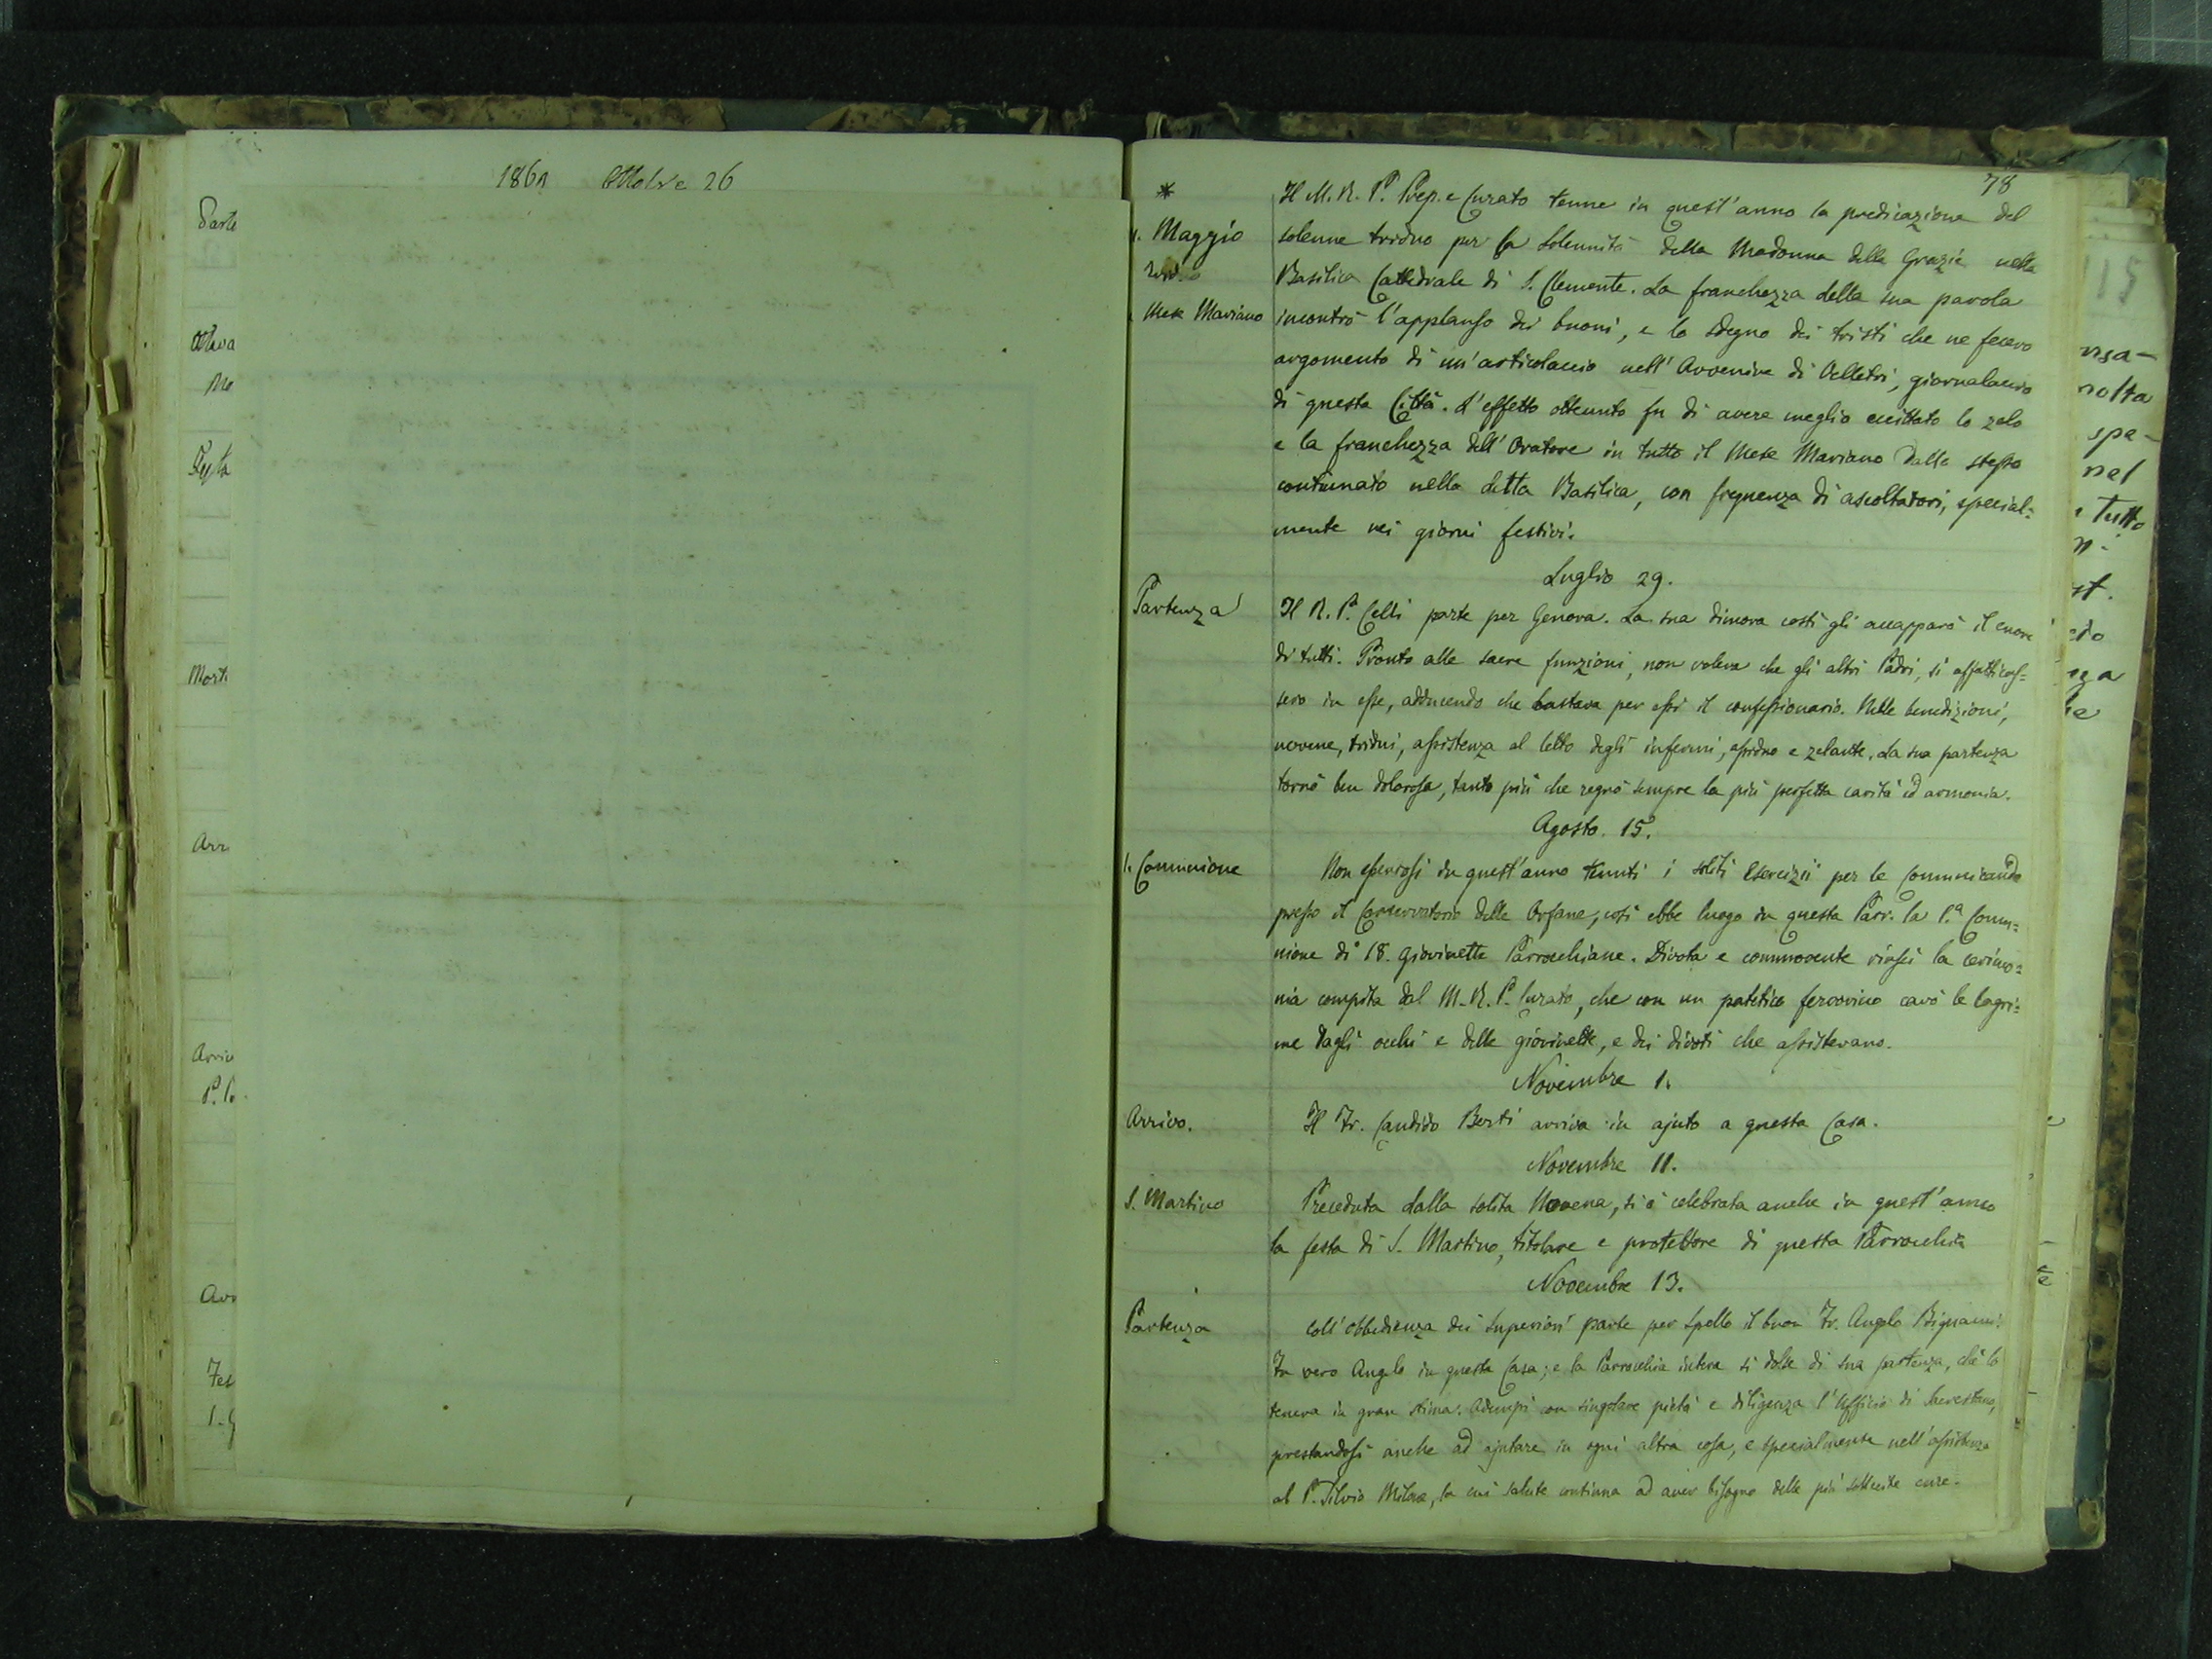 1861 Ottobre 26
Parte
Me
Morte
Arr
Arriv
Arr
Fes
78
*
Maggio
Mese Mariano
Il M. R. P. Prep. e Curato tenne in quest'anno la predicazione del
solenne triduo per la solennità della Madonna delle Grazie nella
Basilica Cattedrale di S. Clemente. La franchezza della sua parola
incontrò l'applauso dei buoni, e lo sdegno dei tristi che ne fecero
argomento di un'articolaccio nell'Avvenire di Velletri, giornalaccio
di questa Città. L'effetto ottenuto fu di avere meglio eccittato lo zelo
e la franchezza dell'Oratore in tutto il Mese Mariano dallo stesso
continuato nella detta Basilica, con frequenza di ascoltatori, special=
mente nei giorni festivi.
Luglio 29.
Partenza
Il R. P. Celli parte per Genova. La sua dimora costì gli accapparò il cuore
di tutti. Pronto alle sacre funzioni, non voleva che gli altri Padri, si affatticas=
sero in esse, adducendo che bastava per essi il confessionario. Nelle benedizioni,
novene, tridui, assistenza al letto degli infermi, assiduo e zelante. La sua partenza
tornò ben dolorosa, tanto più che regnò sempre la più perfetta carità ed armonia.
Agosto. 15.
1. Comunione
Non essendosi in quest'anno tenuti i soliti Esercizii per le Communicande
presso il Conservatorio delle Orfane, così ebbe luogo in questa Parr. la 1.a Comu=
nione di 18. giovinette Parrocchiane. Divota e commovente riuscì la cerimo=
nia compita dal M. R. P. Curato, che con un patetico fervorino cavò le lagri=
me dagli occhi e delle giovinette, e dei divoti che assistevano.
Novembre 1.
Arrivo.
Il Fr. Candido Berti arriva in ajuto a questa Casa.
Novembre 11.
S. Martino
Preceduta dalla solita Novena, si è celebrata anche in quest'anno
la festa di S. Martino, titolare e protettore di questa Parrocchia
Novembre 13.
Partenza
Coll'obbedienza dei Superiori parte per Spello il buon Fr. Angelo Bignami.
Fu vero Angelo in questa Casa; e la Parrocchia intera si dolse di sua partenza, chè lo
teneva in gran stima. Adempì con singolare pietà e diligenza l'Ufficio di Sacrestano,
prestandosi anche ad ajutare in ogni altra cosa, e specialmente nell'assistenza
al P. Silvio Milose, la cui salute continua ad aver bisogno delle più sollecite cure.
15
nolta
spe-
nel
tutto